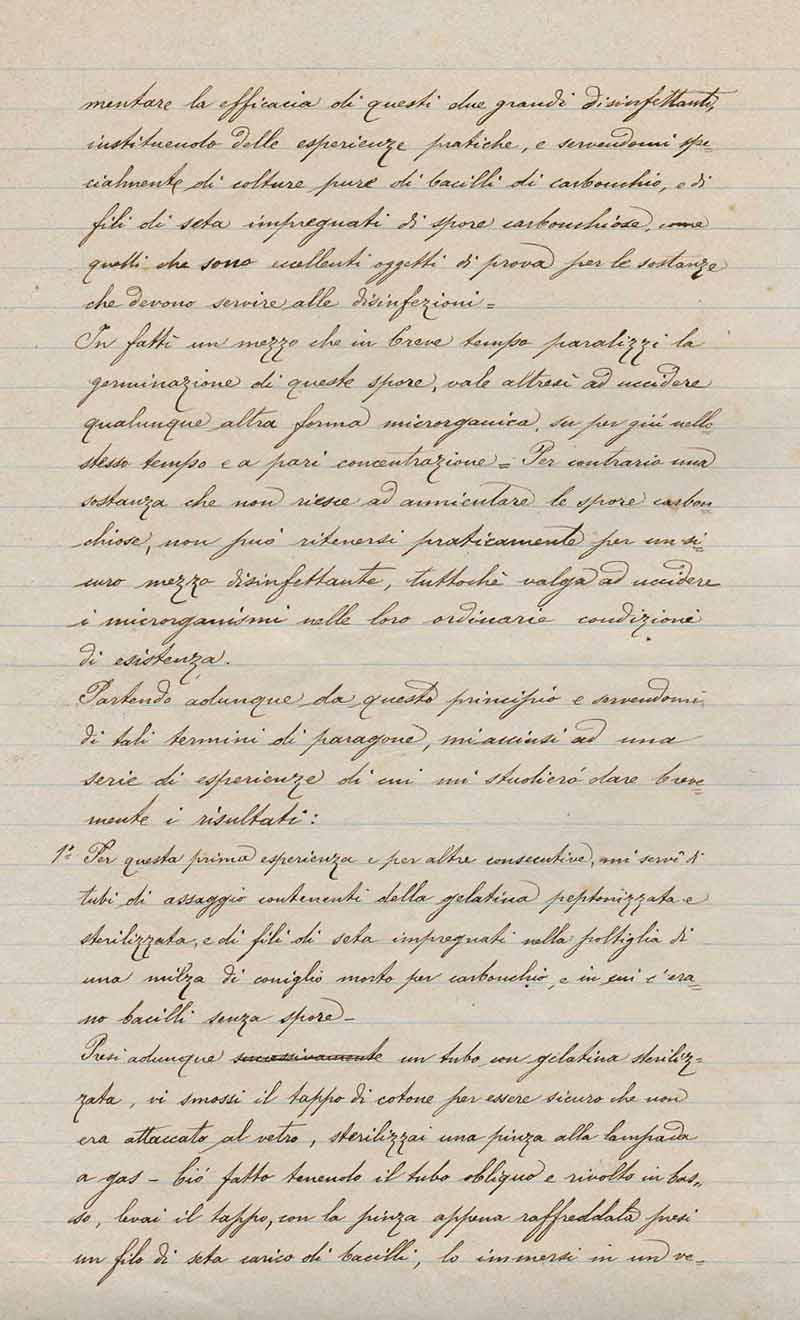 mentare la efficacia di questi due grandi disinfettanti,
instituendo delle esperienze pratiche, e servendomi spe=
cialmente di colture pure di bacilli di carbonchio, e di
fili di seta impregnati di spore carbonchiose, come
quelli che sono eccellenti oggetti di prova per le sostanze
che devono servire alle disinfezioni=
In fatti un mezzo che in breve tempo paralizzi la
germinazione di queste spore, vale altresì ad uccidere
qualunque altra forma microrganica, su per giù nello
stesso tempo e a pari concentrazione= Per contrario una
sostanza che non riesce ad annientare le spore carbon=
chiose, non può ritenersi praticamente per un si=
curo mezzo disinfettante, tuttochè valga ad uccidere
i microrganismi nelle loro ordinarie condizioni
di esistenza.
Partendo adunque da questo principio e servendomi
di tali termini di paragone, mi accinsi ad una
serie di esperienze di cui mi studierò dare breve=
mente i risultati:
1º= Per questa prima esperienza e per altre consecutive, mi servî di
tubi di assaggio contenenti della gelatina peptonizzata e
sterilizzata, e di fili di seta impregnati nella poltiglia di
una milza di coniglio morto per carbonchio, e in cui c'era=
no bacilli senza spore-
Presi adunque successivamente un tubo con gelatina steriliz=
zata, vi smossi il tappo di cotone per essere sicuro che non
era attaccato al vetro, sterilizzai una pinza alla lampada
a gas- Ciò fatto tenendo il tubo obliquo e rivolto in bas=
so, levai il tappo, con la pinza appena raffreddata presi
un filo di seta carico di bacilli, lo immersi in un ve=